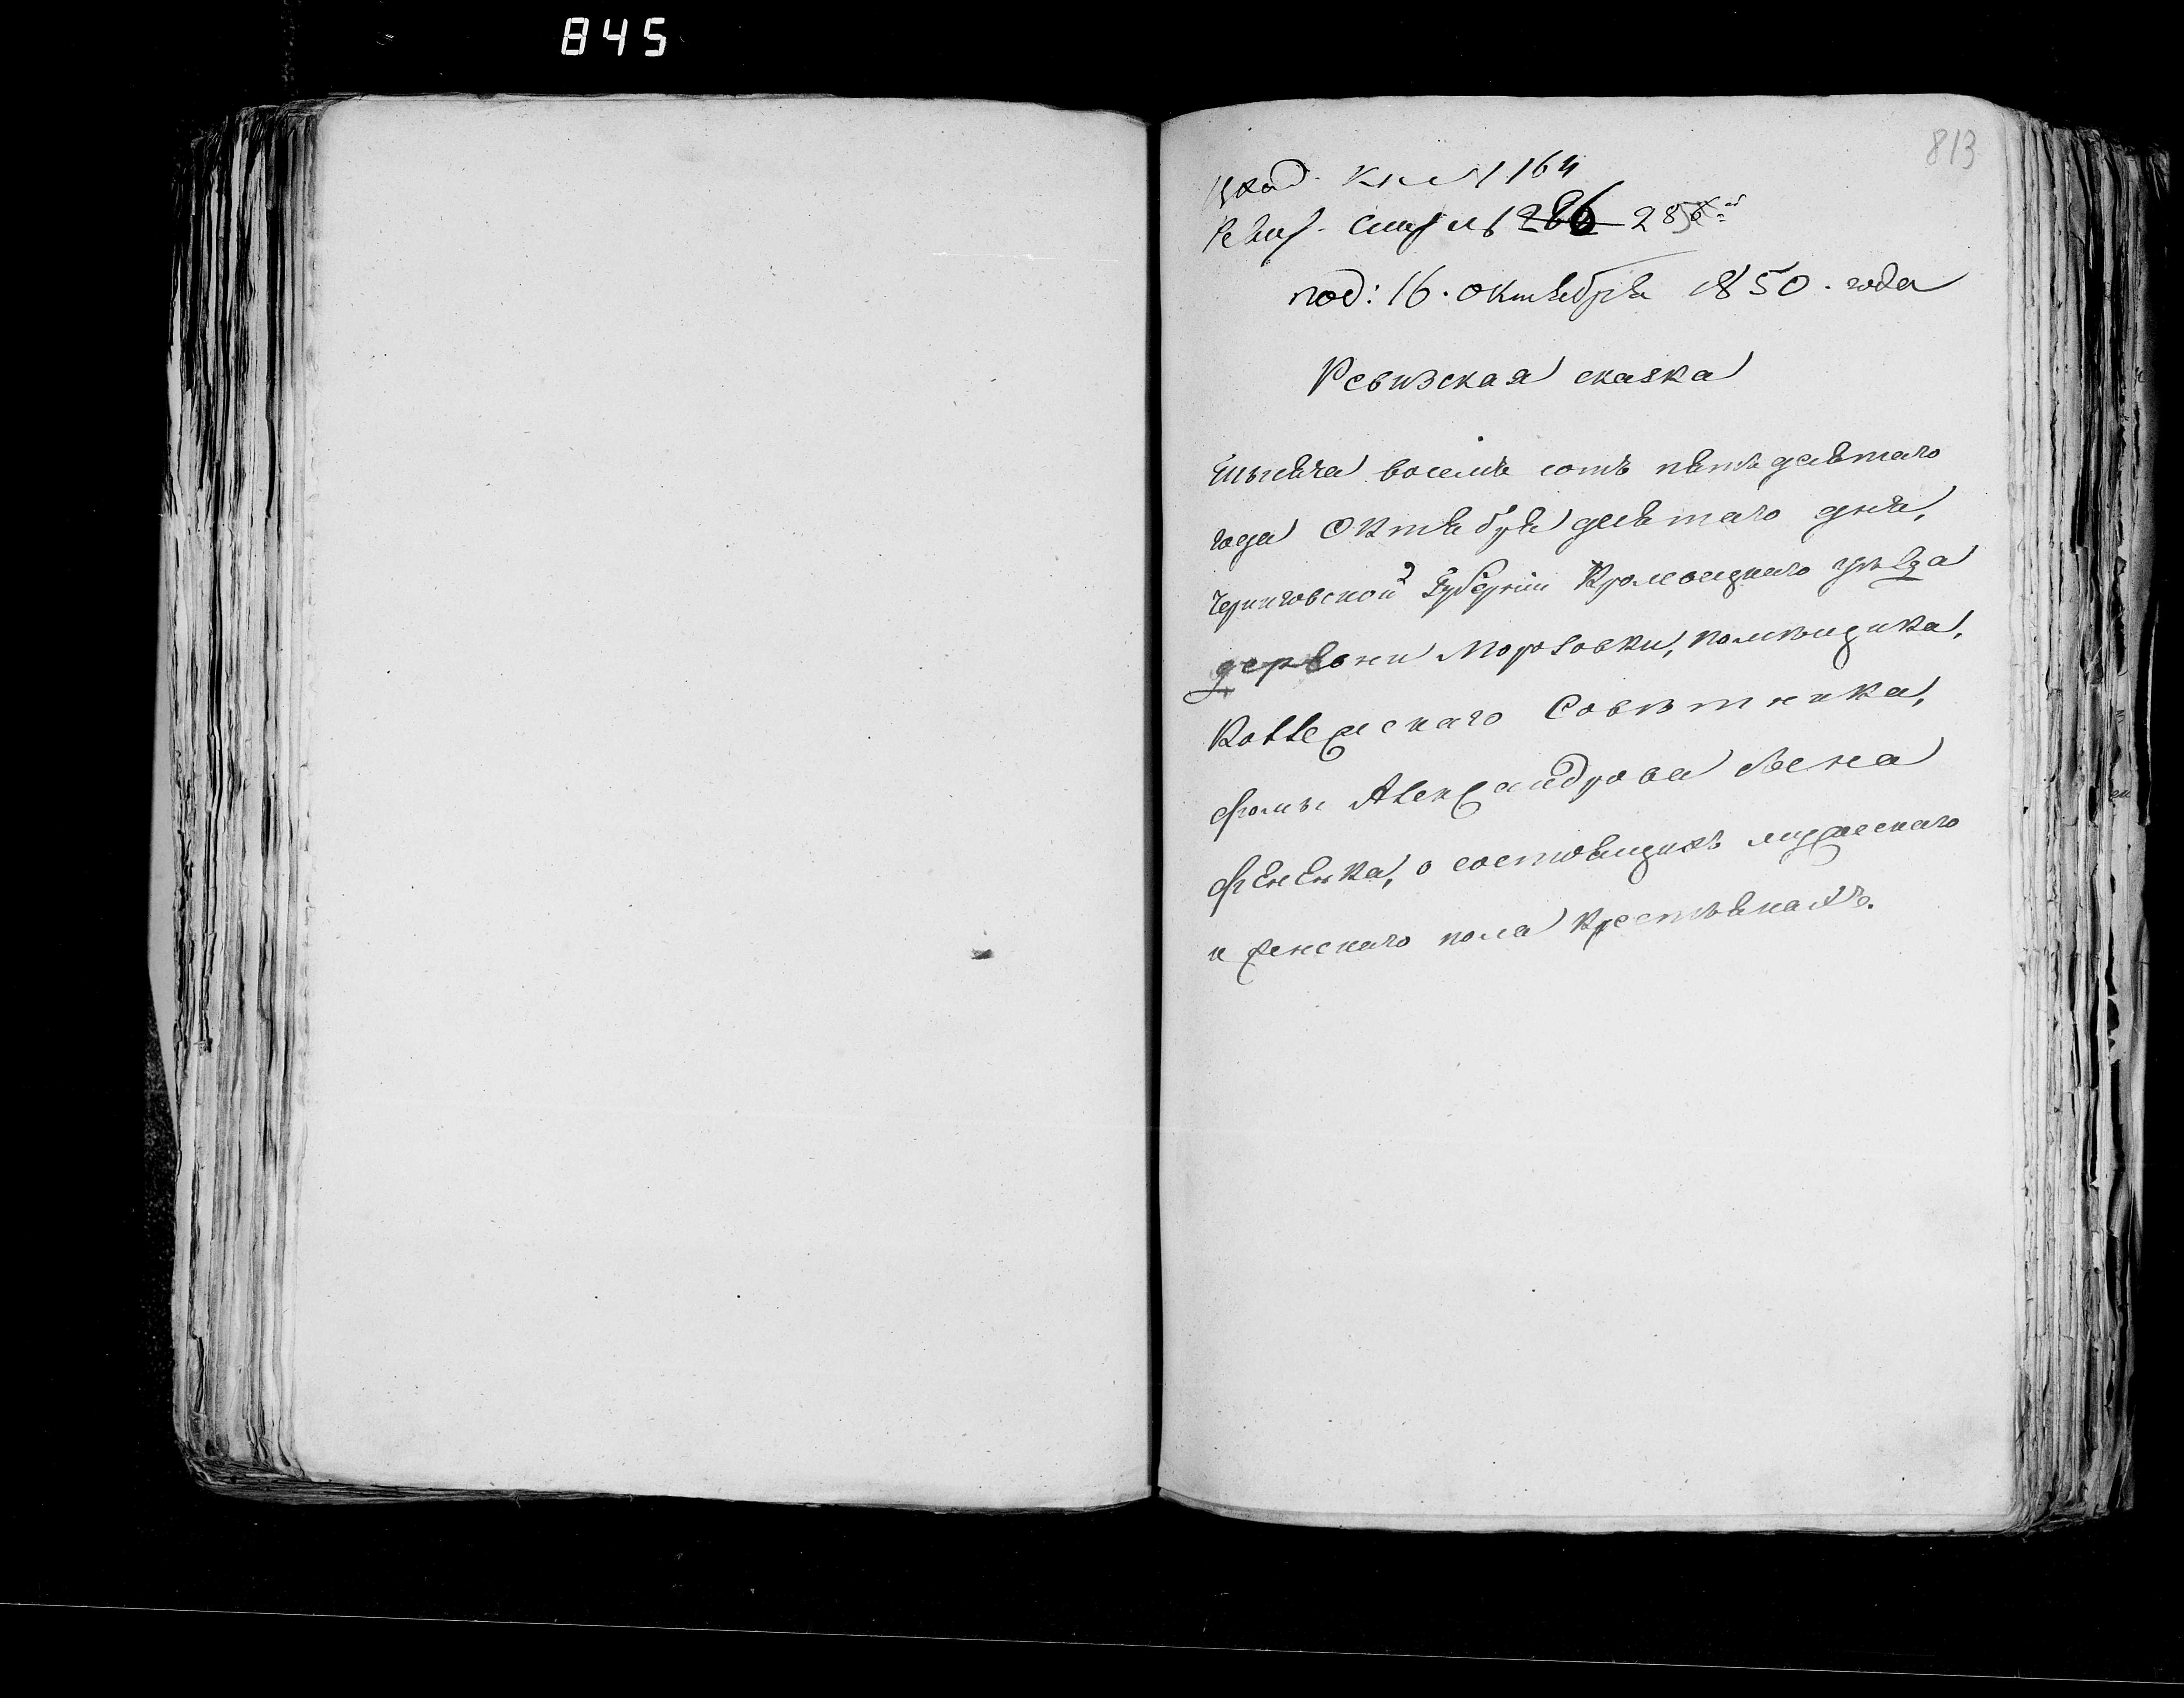 845
813
Вход. кн. № 1164
Ревиз. спис № 286 285
под: 16. октября 1850. года
Ревизская сказка
тысяча восемь сотъ пятьдесятаго
года Октября десятаго дня,
Черниговской Губерніи Кролевецкаго уѣзда
деревни Морозовки, помѣщика,
Коллежскаго Совѣтника,
Фомы Александрова сына
Фененка, о состоящихъ мужескаго
и женскаго пола крестьянахъ.